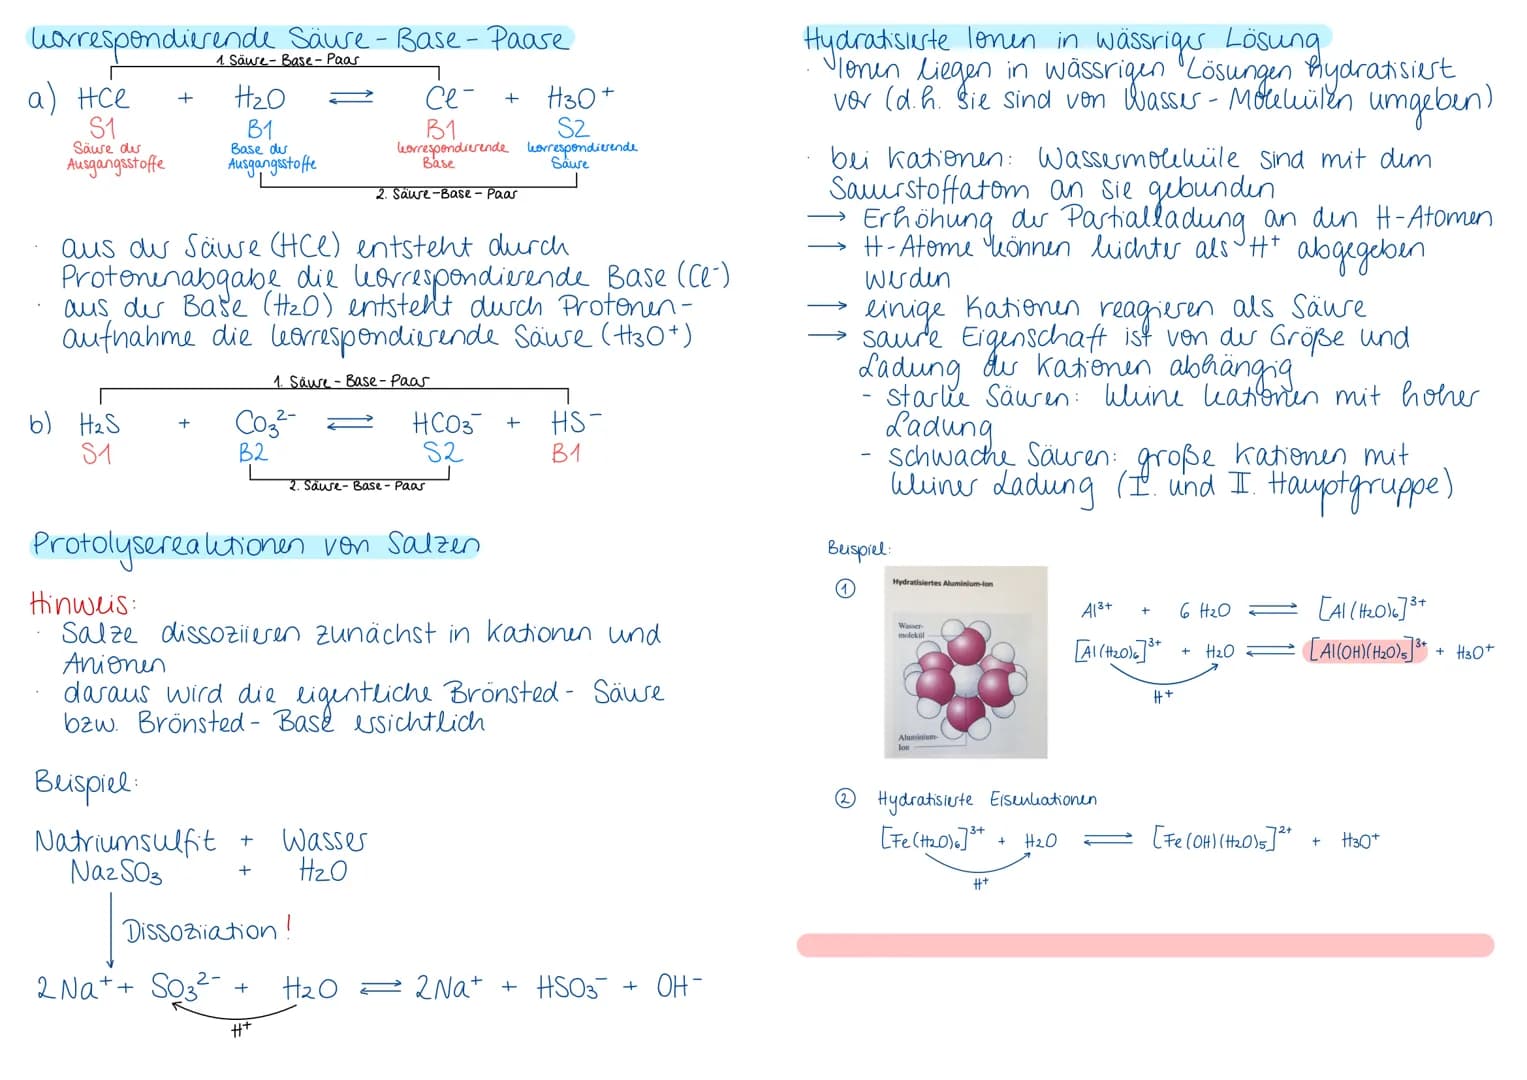 korrespondierende Säure-Base-Paare
1. Säure-Base-Paar
a) HCl + H2O ⇌ Cl- + H3O+
S1 B1 B1 S2
Säure der Ausgangsstoffe
Base der Ausgangsstoffe
korrespondierende Base
korrespondierende Säure
2. Säure-Base-Paar
· aus der Säure (HCl) entsteht durch
Protonenabgabe die korrespondierende Base (Cl-)
· aus der Base (H2O) entsteht durch Protonen-
aufnahme die korrespondierende Säure (H3O+)
1. Säure-Base-Paar
b) H2S + CO3²- ⇌ HCO3- + HS-
S1 B2 S2 B1
2. Säure-Base-Paar
Protolysereaktionen von Salzen
Hinweis:
· Salze dissoziieren zunächst in Kationen und
Anionen
· daraus wird die eigentliche Brönsted-Säure
bzw. Brönsted-Base ersichtlich
Beispiel:
Natriumsulfit + Wasser
Na2SO3 + H2O
Dissoziiation!
2Na+ + SO3²- + H2O ⇌ 2Na+ + HSO3- + OH-
H+
Hydratisierte Ionen in wässriger Lösung
· Ionen liegen in wässrigen Lösungen hydratisiert
vor (d.h. sie sind von Wasser-Molekülen umgeben)
· bei Kationen: Wassermoleküle sind mit dem
Sauerstoffatom an sie gebunden
→ Erhöhung der Partialladung an den H-Atomen
→ H-Atome können leichter als H+ abgegeben
werden
→ einige Kationen reagieren als Säure
→ saure Eigenschaft ist von der Größe und
Ladung der Kationen abhängig
- starke Säuren: kleine Kationen mit hoher
Ladung
- schwache Säuren: große Kationen mit
kleiner Ladung (I. und II. Hauptgruppe)
Beispiel:
①
Hydratisiertes Aluminium-Ion
Wasser-
molekül
Aluminium-
Ion
Al³+ + 6 H2O ⇌ [Al(H2O)6]³+
[Al(H2O)6]³+ + H2O ⇌ [Al(OH)(H2O)5]³+ + H3O+
H+
② Hydratisierte Eisenkationen
[Fe(H2O)6]³+ + H2O ⇌ [Fe(OH)(H2O)5]²+ + H3O+
H+